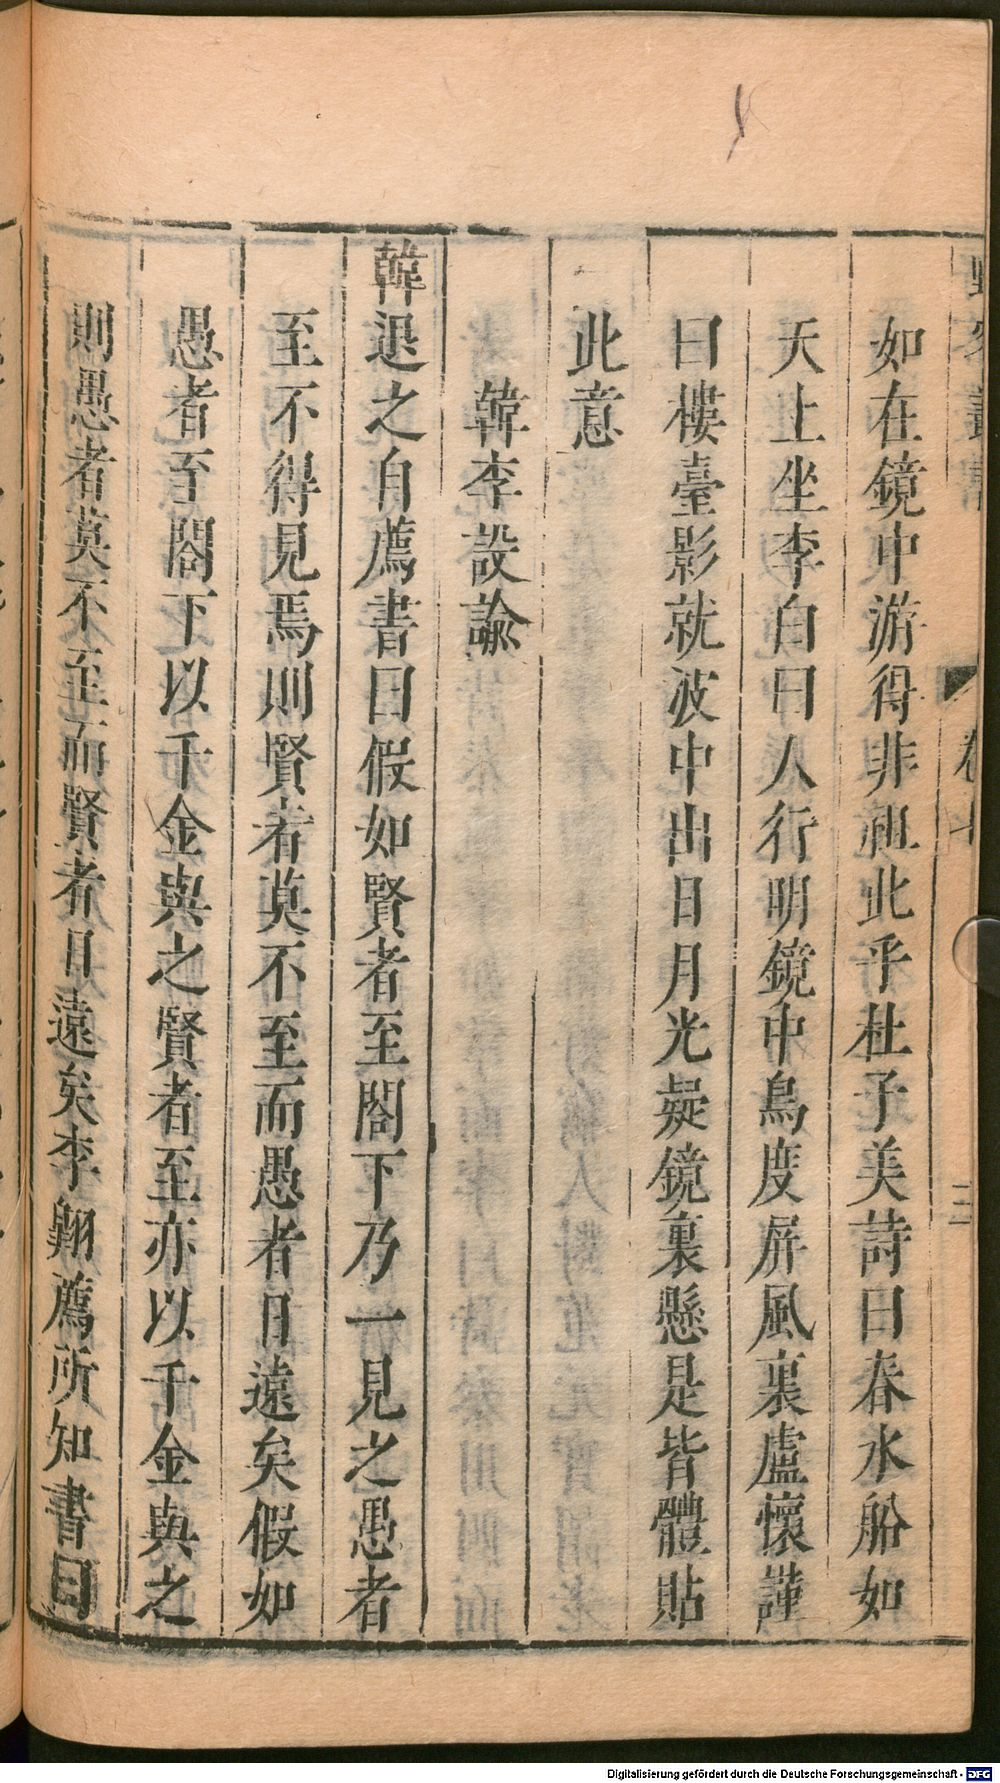 野客叢書 卷七 三
如在鏡中游得非祖此乎杜子美詩曰春水船如
天上坐李白曰人行明鏡中鳥度屏風裏盧懷謹
曰樓臺影就波中出日月光疑鏡裏懸是皆體貼
此意
韓李設諭
韓退之自薦書曰假如賢者至閤下乃一見之愚者
至不得見焉則賢者莫不至而愚者日遠矣假如
愚者至閤下以千金與之賢者至亦以千金與之
則愚者莫不至而賢者日遠矣李翱薦所知書曰
Digitalisierung gefördert durch die Deutsche Forschungsgemeinschaft - DFG